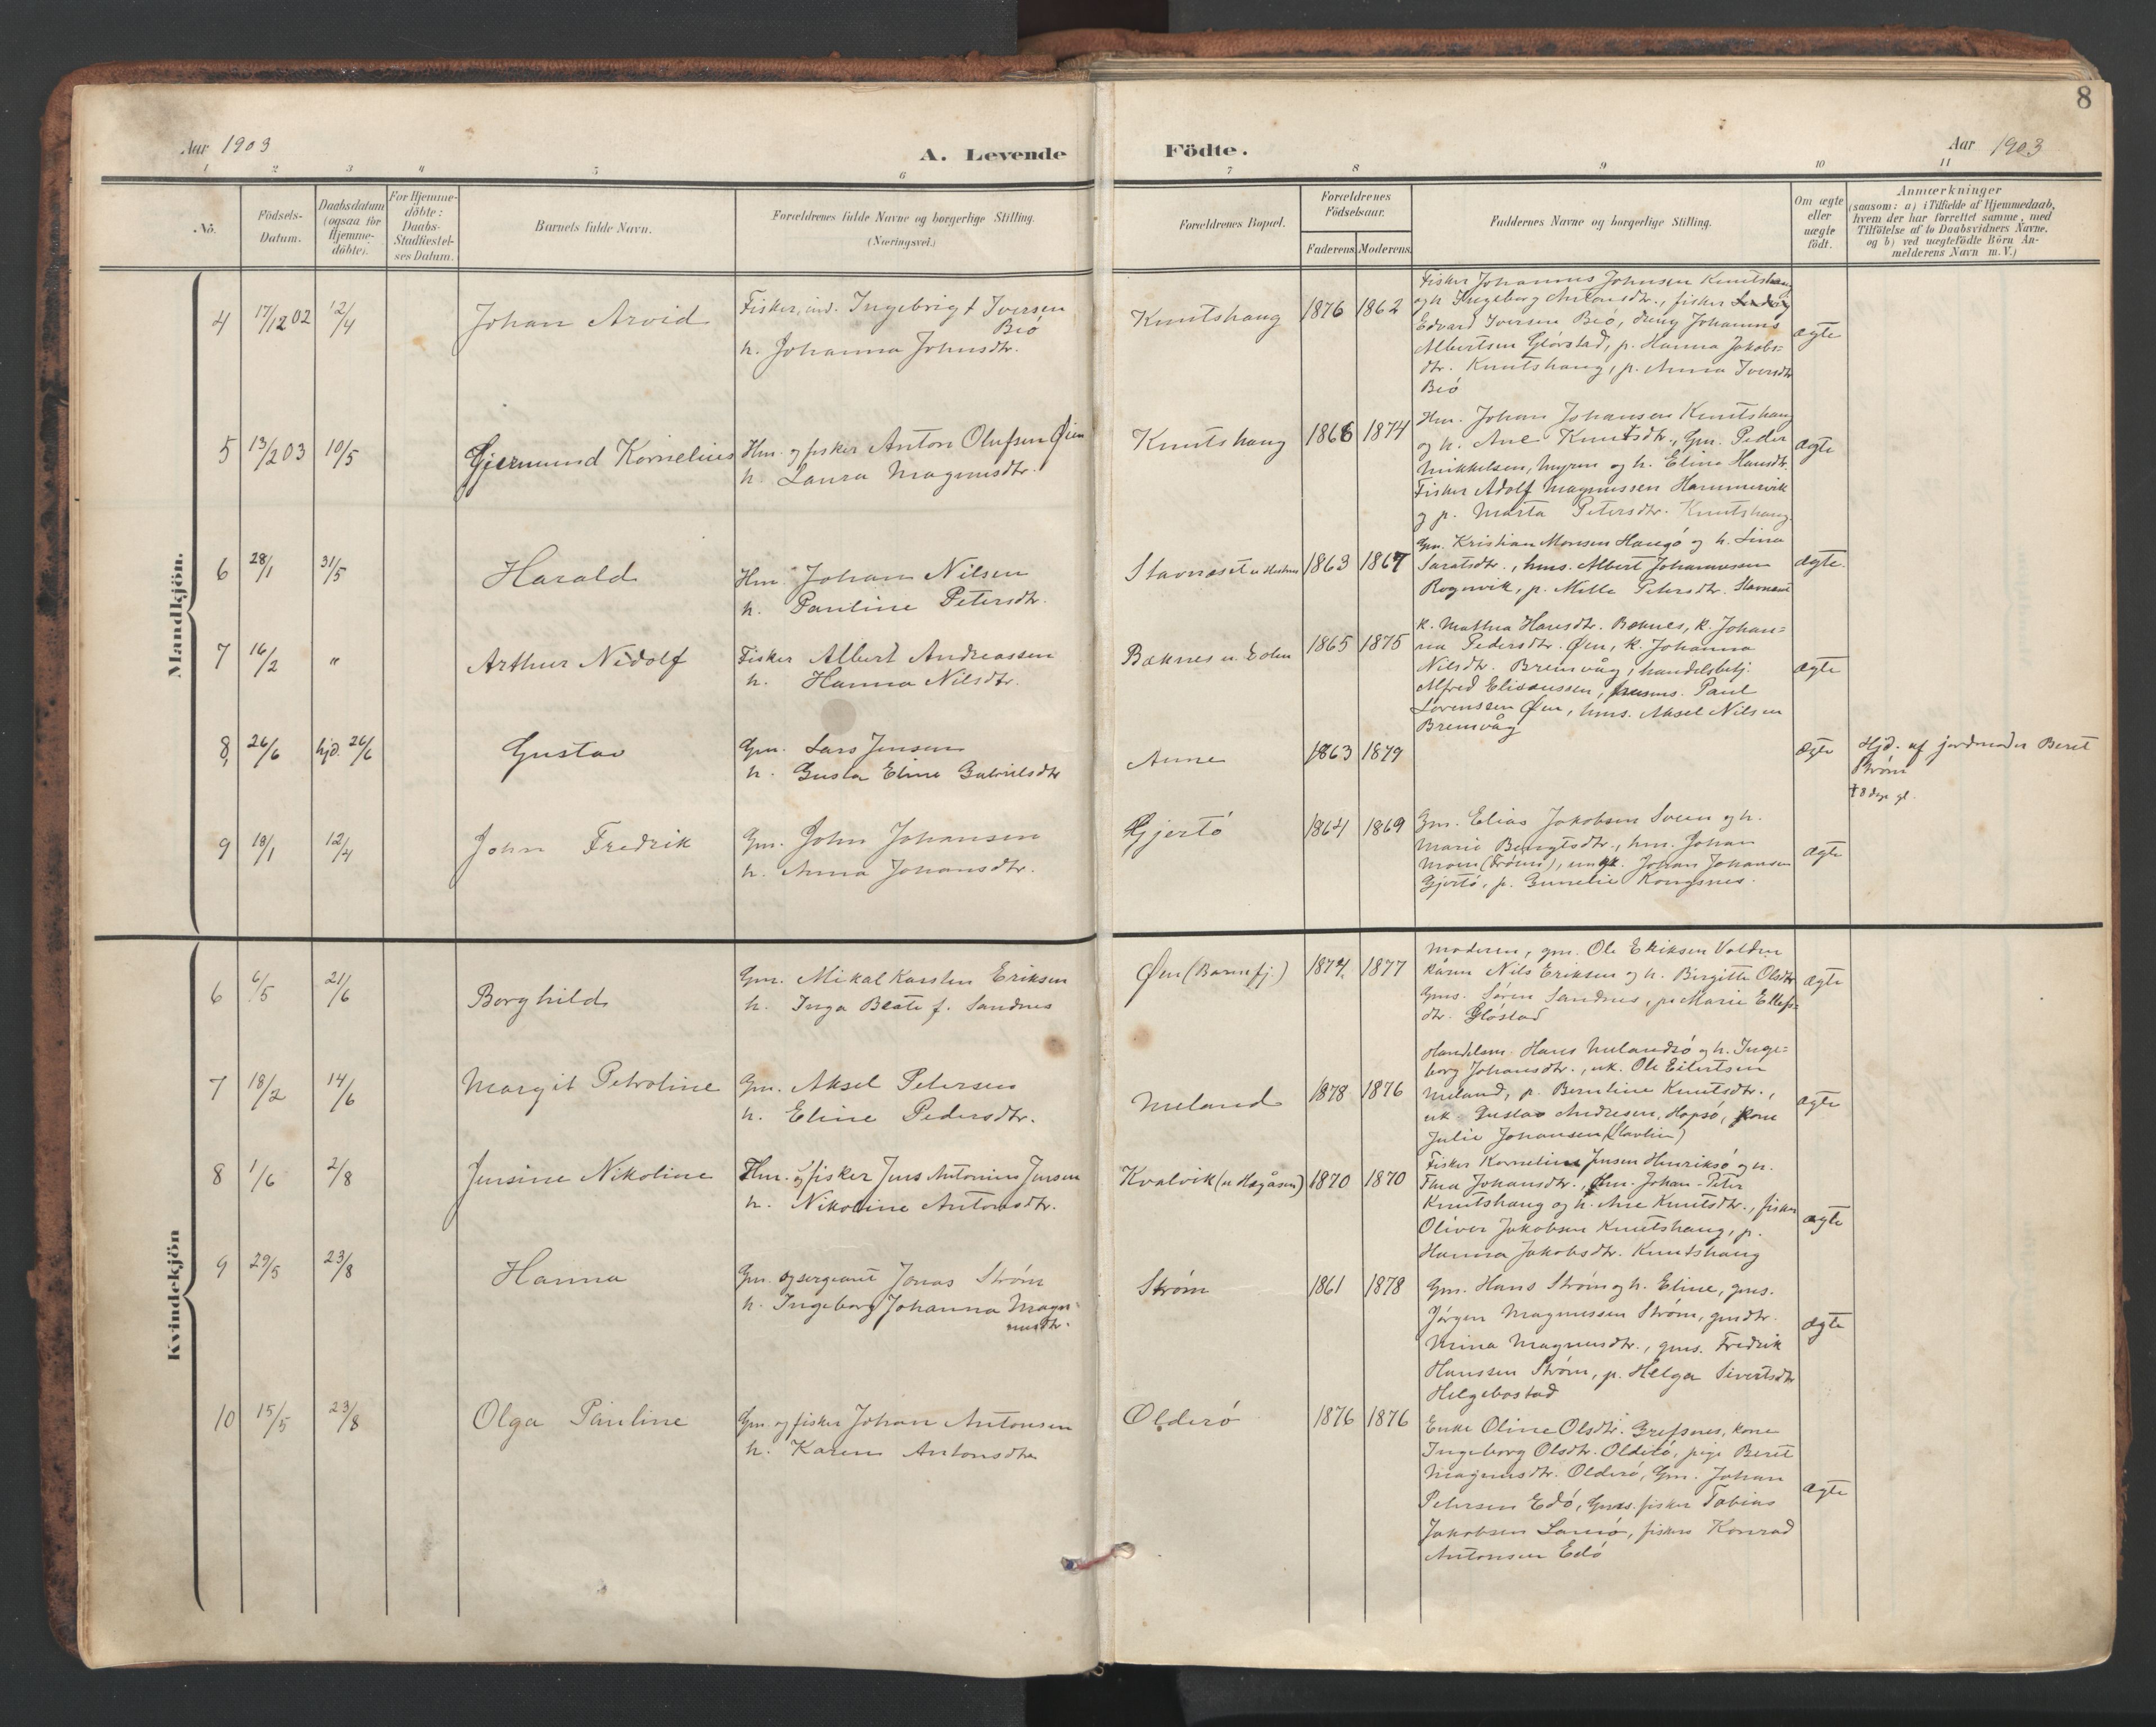 8
Aar 1903
A. Levende
Födte.
Aar 1903
1 2 3 4 5 6 7 8 9 10 11
No.
Födsels-
Datum.
Daabsdatum
(ogsaa for
Hjemme-
döbte).
For Hjemme-
döbte:
Daabs-
Stadfæstel-
ses Datum.
Barnets fulde Navn.
Forældrenes fulde Navne og borgerlige Stilling.
(Næringsvei.)
Forældrenes Bopæl.
Forældrenes
Födselsaar.
Faderens Moderens
Faddernes Navne og borgerlige Stilling.
Om ægte
eller
uægte
födt.
Anmærkninger
(saasom: a) i Tilfælde af Hjemmedaab,
hvem der har forrettet samme, med
Tilföielse af to Daabsvidners Navne,
og b) ved uægtefödte Börn An-
melderens Navn m. V.)
Mandkjön.
4 17/12 02 12/4 Johan Arvid
Fisker, ind. Ingebrigt Iversen
Beö
h. Johanna Johnsdtr.
Knutshaug 1876 1862
Fisker Johannus Johnsen Knutshaug
og h Ingeborg Antonsdtr., fisker
Edvard Iversen Beö, dreng Johannus
Albertsen Glörstad, p. Hanna Jakobs-
dtr. Knutshaug, p. Anna Iversdtr
Beö
ægte
5 13/2 03 10/5 Gjermund Kornelius
Hm. og fisker Anton Olufsen Øien
h. Laura Magnusdtr.
Knutshaug 1866 1874
Hm. Johan Johansen Knutshaug
og h. Ane Knutsdtr., Gm. Peder
Mikkelsen, Myren og h. Eline Hansdtr.
Fisker Adolf Magnussen Hammervik
og p. Marta Petersdtr. Knutshaug.
ægte
6 28/1 31/5 Harald
Hm. Johan Nilsen
h. Pauline Petersdtr.
Stavnæset 1863 1867
Gm. Kristian Monsen Haugö og h. Lina
hms. Albert Johannessen
p. Mille Petersdtr. Stavnæset
ægte.
7 16/2 " Arthur Nidolf
Fisker Albert Andreassen
h. Hanna Nilsdtr.
Bæknes u. Edøen 1865 1875
k. Mathea Hansdtr. Bæknes, k. Johan-
na Pedersdtr. Øen, k. Johanna
Nilsdtr. Bremvåg, handelsbetj.
Alfred Eliseussen, Paul
Lorenssen Øen, hms. Aksel Nilsen
Bremvåg
ægte
8, 26/6 hjd. 26/6 Gustav
Gm. Lars Jensen
h. Gusta Eline Gabrielsdtr
Aune 1863 1879
ægte
Hjd. af jordmoder Beret
Strøm
† 8 dage gl.
9 18/1 12/4 John Fredrik
Gm. John Johansen
h. Anna Johansdtr.
Gjertö 1864 1869
Gm. Elias Jakobsen Sveen og h.
Marie Bengtsdtr., hm. Johan
Moen (Fröien), ungk. Johan Johansen
Gjertö, p. Gunelie Kongsnes.
ægte
Kvindekjön
6 6/5 21/6 Borghild
Gm. Mikal Karsten Eriksen
h. Inga Beate f. Sandnes
Øen (Barmfj.) 1874. 1877
Moderen, gm. Ole Eriksen Valden
Nils Eriksen og h. Birgitte Olsdtr
Gms. Søren Sandnes, p. Marie Ellefs-
dtr. Gløstad
ægte
7 18/2 14/6 Margit Petroline
Gm. Aksel Petersen
h. Eline Pedersdtr.
Meland 1878 1876
Handelsm. Hans Melandsö og h. Inge-
borg Johansdtr., uk. Ole Eilertsen
Meland, p. Berntine Knutsdtr.,
uk. Gustav Andresen, Hopsö, kone
Julie Johansen (Slavlien)
ægte
8 1/6 2/8 Jensine Nikoline
Hm. og fisker Jens Antonius Jensen
h. Nikoline Antonsdtr.
Kvalvik (u Hagåsen) 1870 1870
Fisker Kornelius Jensen Henriksö og h.
Thea Johansdtr., Hm. Johan Peter
Knutshaug og h. Ane Knutsdtr., fisker
Oliver Jakobsen Knutshaug, p.
Hanna Jakobsdtr. Knutshaug
ægte
9 29/5 23/8 Hanna
Gm. og sergeant Jonas Strøm
h. Ingeborg Johanna Magn-
nusdtr.
Strøm 1861 1878
Gm. Hans Strøm og h. Eline, gms.
Jörgen Magnussen Strøm, gmdtr.
Mina Magnusdtr., gms. Fredrik
Hanssen Strøm, p. Helga Sivertsdtr
Helgebostad
ægte
10 15/5 23/8 Olga Pauline
Gm. og fisker Johan Antonsen
h. Karen Antonsdtr
Olderö 1876 1876
Enke Oline Olsdtr. Grefsnes, kone
Ingeborg Olsdtr. Olderö, pige Beret
Magnusdtr. Olderö, Gm. Johan
Petersen Edö, Gms. fisker Tobias
Jakobsen Lamö, fisker Konrad
Antonsen Edö
ægte